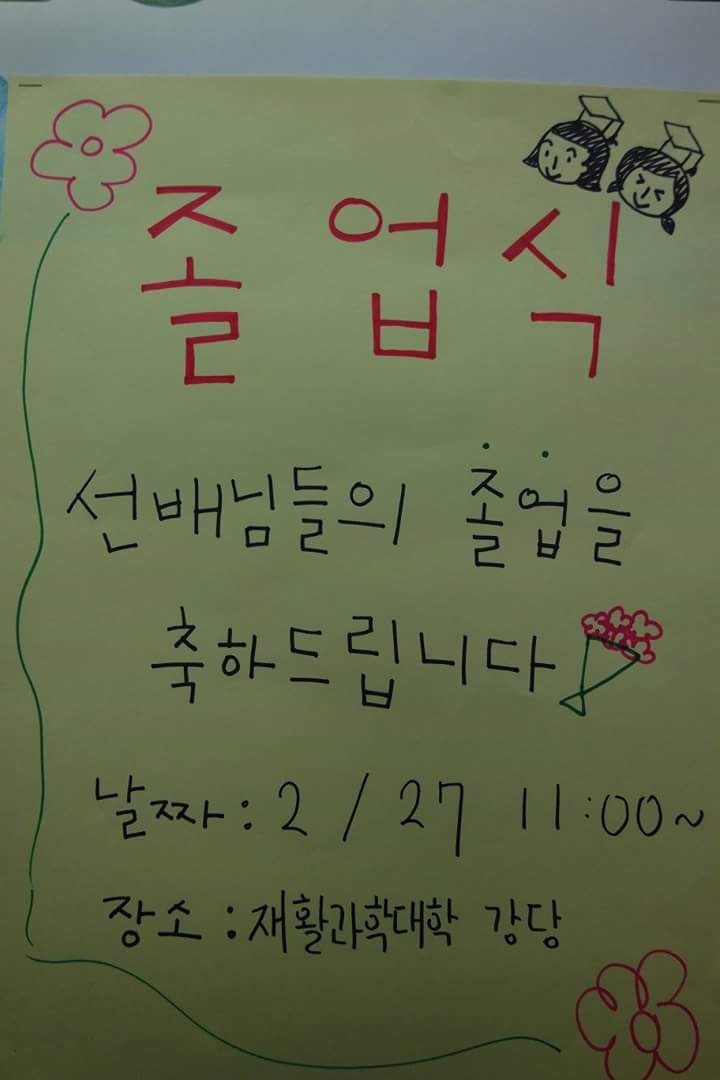 졸업식
선배님들의 졸업을
축하드립니다
날짜: 2 / 27 11:00~
장소: 재활과학대학 강당